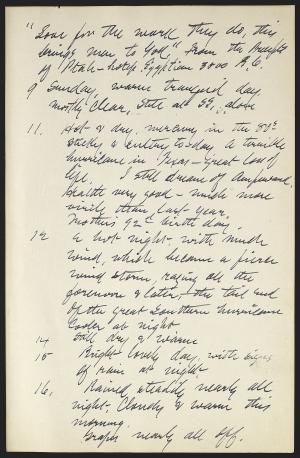 "Love for the work they do, this
brings men to God," From the Precepts
of Ptah-hotep Egyptian 3000 B.C.
9 Sunday, warm tranquil day,
mostly clear, still at 88, above
11. Hot & dry, mercury in the 80s
sticky & sultry to-day. A terrible
hurricane in Texas - Great loss of
life. I still dream of
Health very good - much more
virile than last year.
Mothers 92d birth day.
12 A hot night with much
wind, which became a fierce
wind storm, raging all the
forenoon & later, - the tail end
of the great Southern hurricane
Cooler at night.
14 Still dry & warm
15 Bright lovely day, with signs
of rain at night
16, Rained steadily nearly all
night, Cloudy & warm this
morning.
Grapes nearly all off.